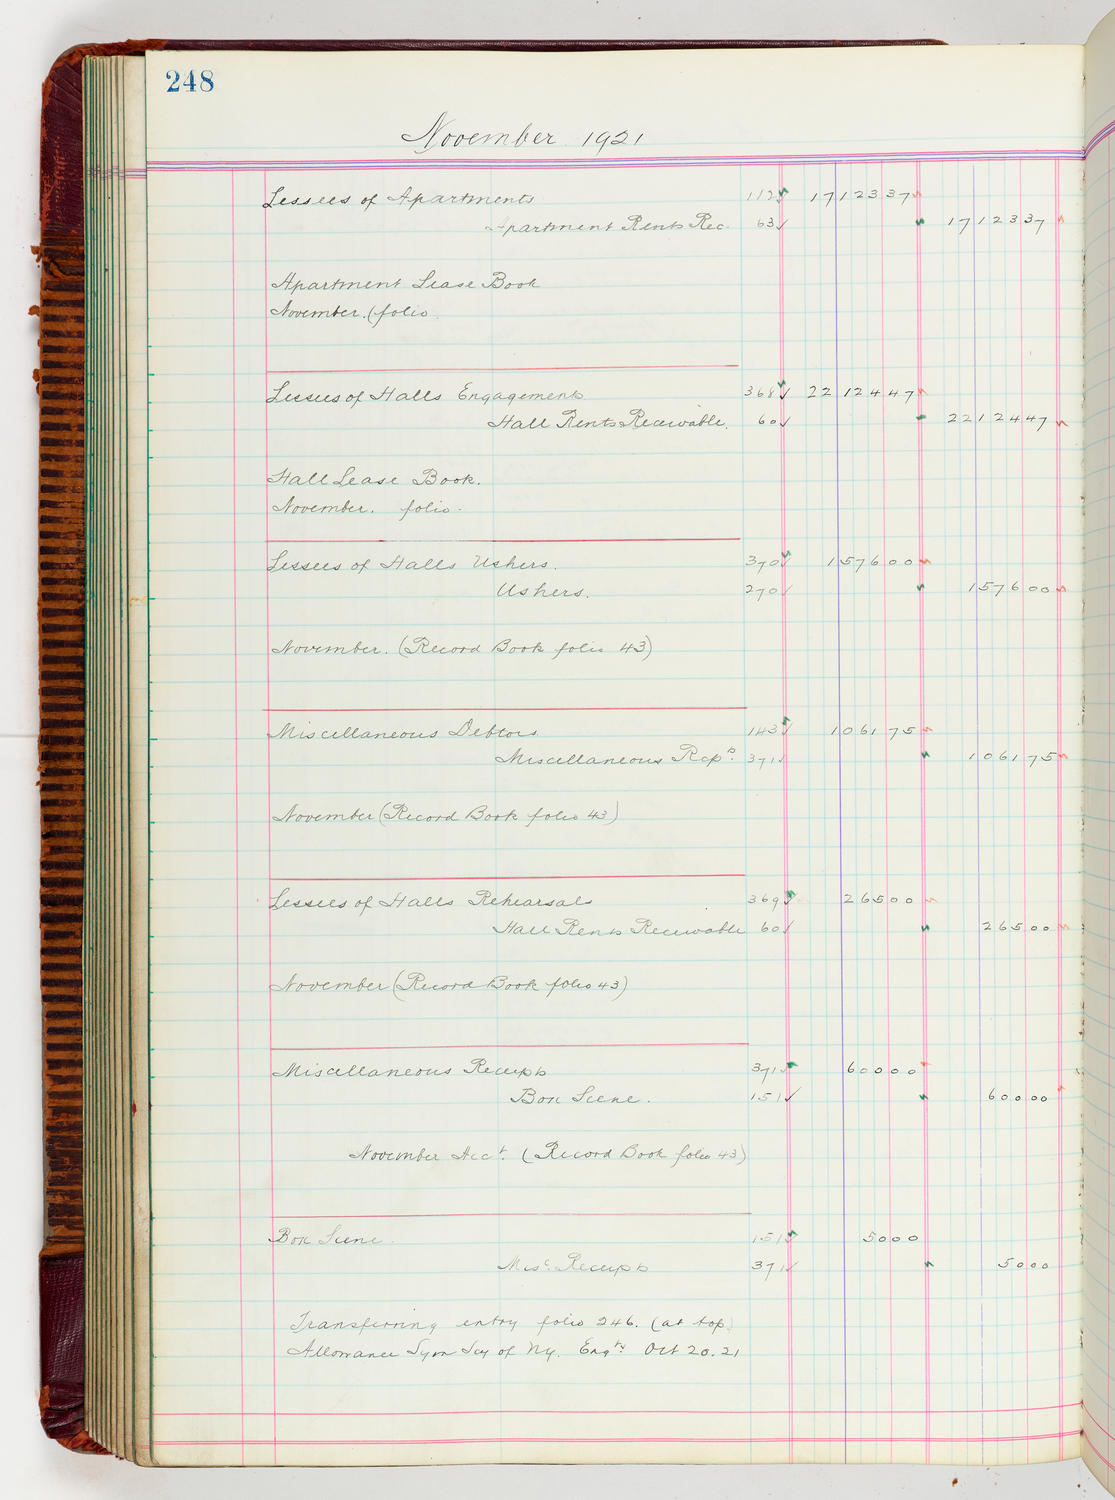 248
November 1921
Lessees of Apartments 112 17123 37
Apartment Rents Rec. 63 17123 37
Apartment Lease Book
November. (folio
Lessees of Halls Engagements 368 22124 47
Hall Rents Receivable. 60 22124 47
Hall Lease Book.
November. folio.
Lessees of Halls Ushers. 370 1576 00
Ushers. 270 1576 00
November. (Record Book folio 43)
Miscellaneous Debtors 143 1061 75
Miscellaneous Rcpts. 371 1061 75
November (Record Book folio 43)
Lessees of Halls Rehearsals 369 265 00
Hall Rents Receivable 60 265 00
November (Record Book folio 43)
Miscellaneous Receipts 371 600 00
Box Scene. 151 600 00
November Acct. (Record Book folio 43)
Box Scene. 151 50 00
Misc. Receipts 371 50 00
Transferring entry folio 246. (at top)
Allowance Sym Socy of Ny. Engts. Oct 20. 21